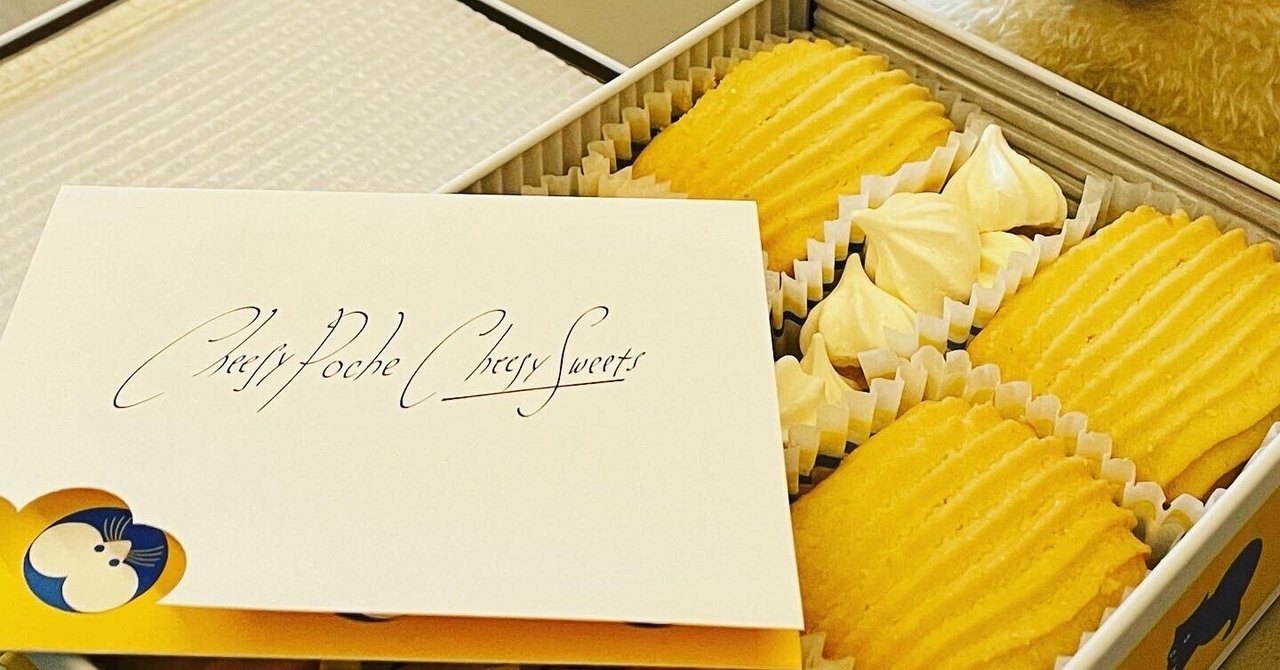 Cheesy Poche Cheesy Sweets